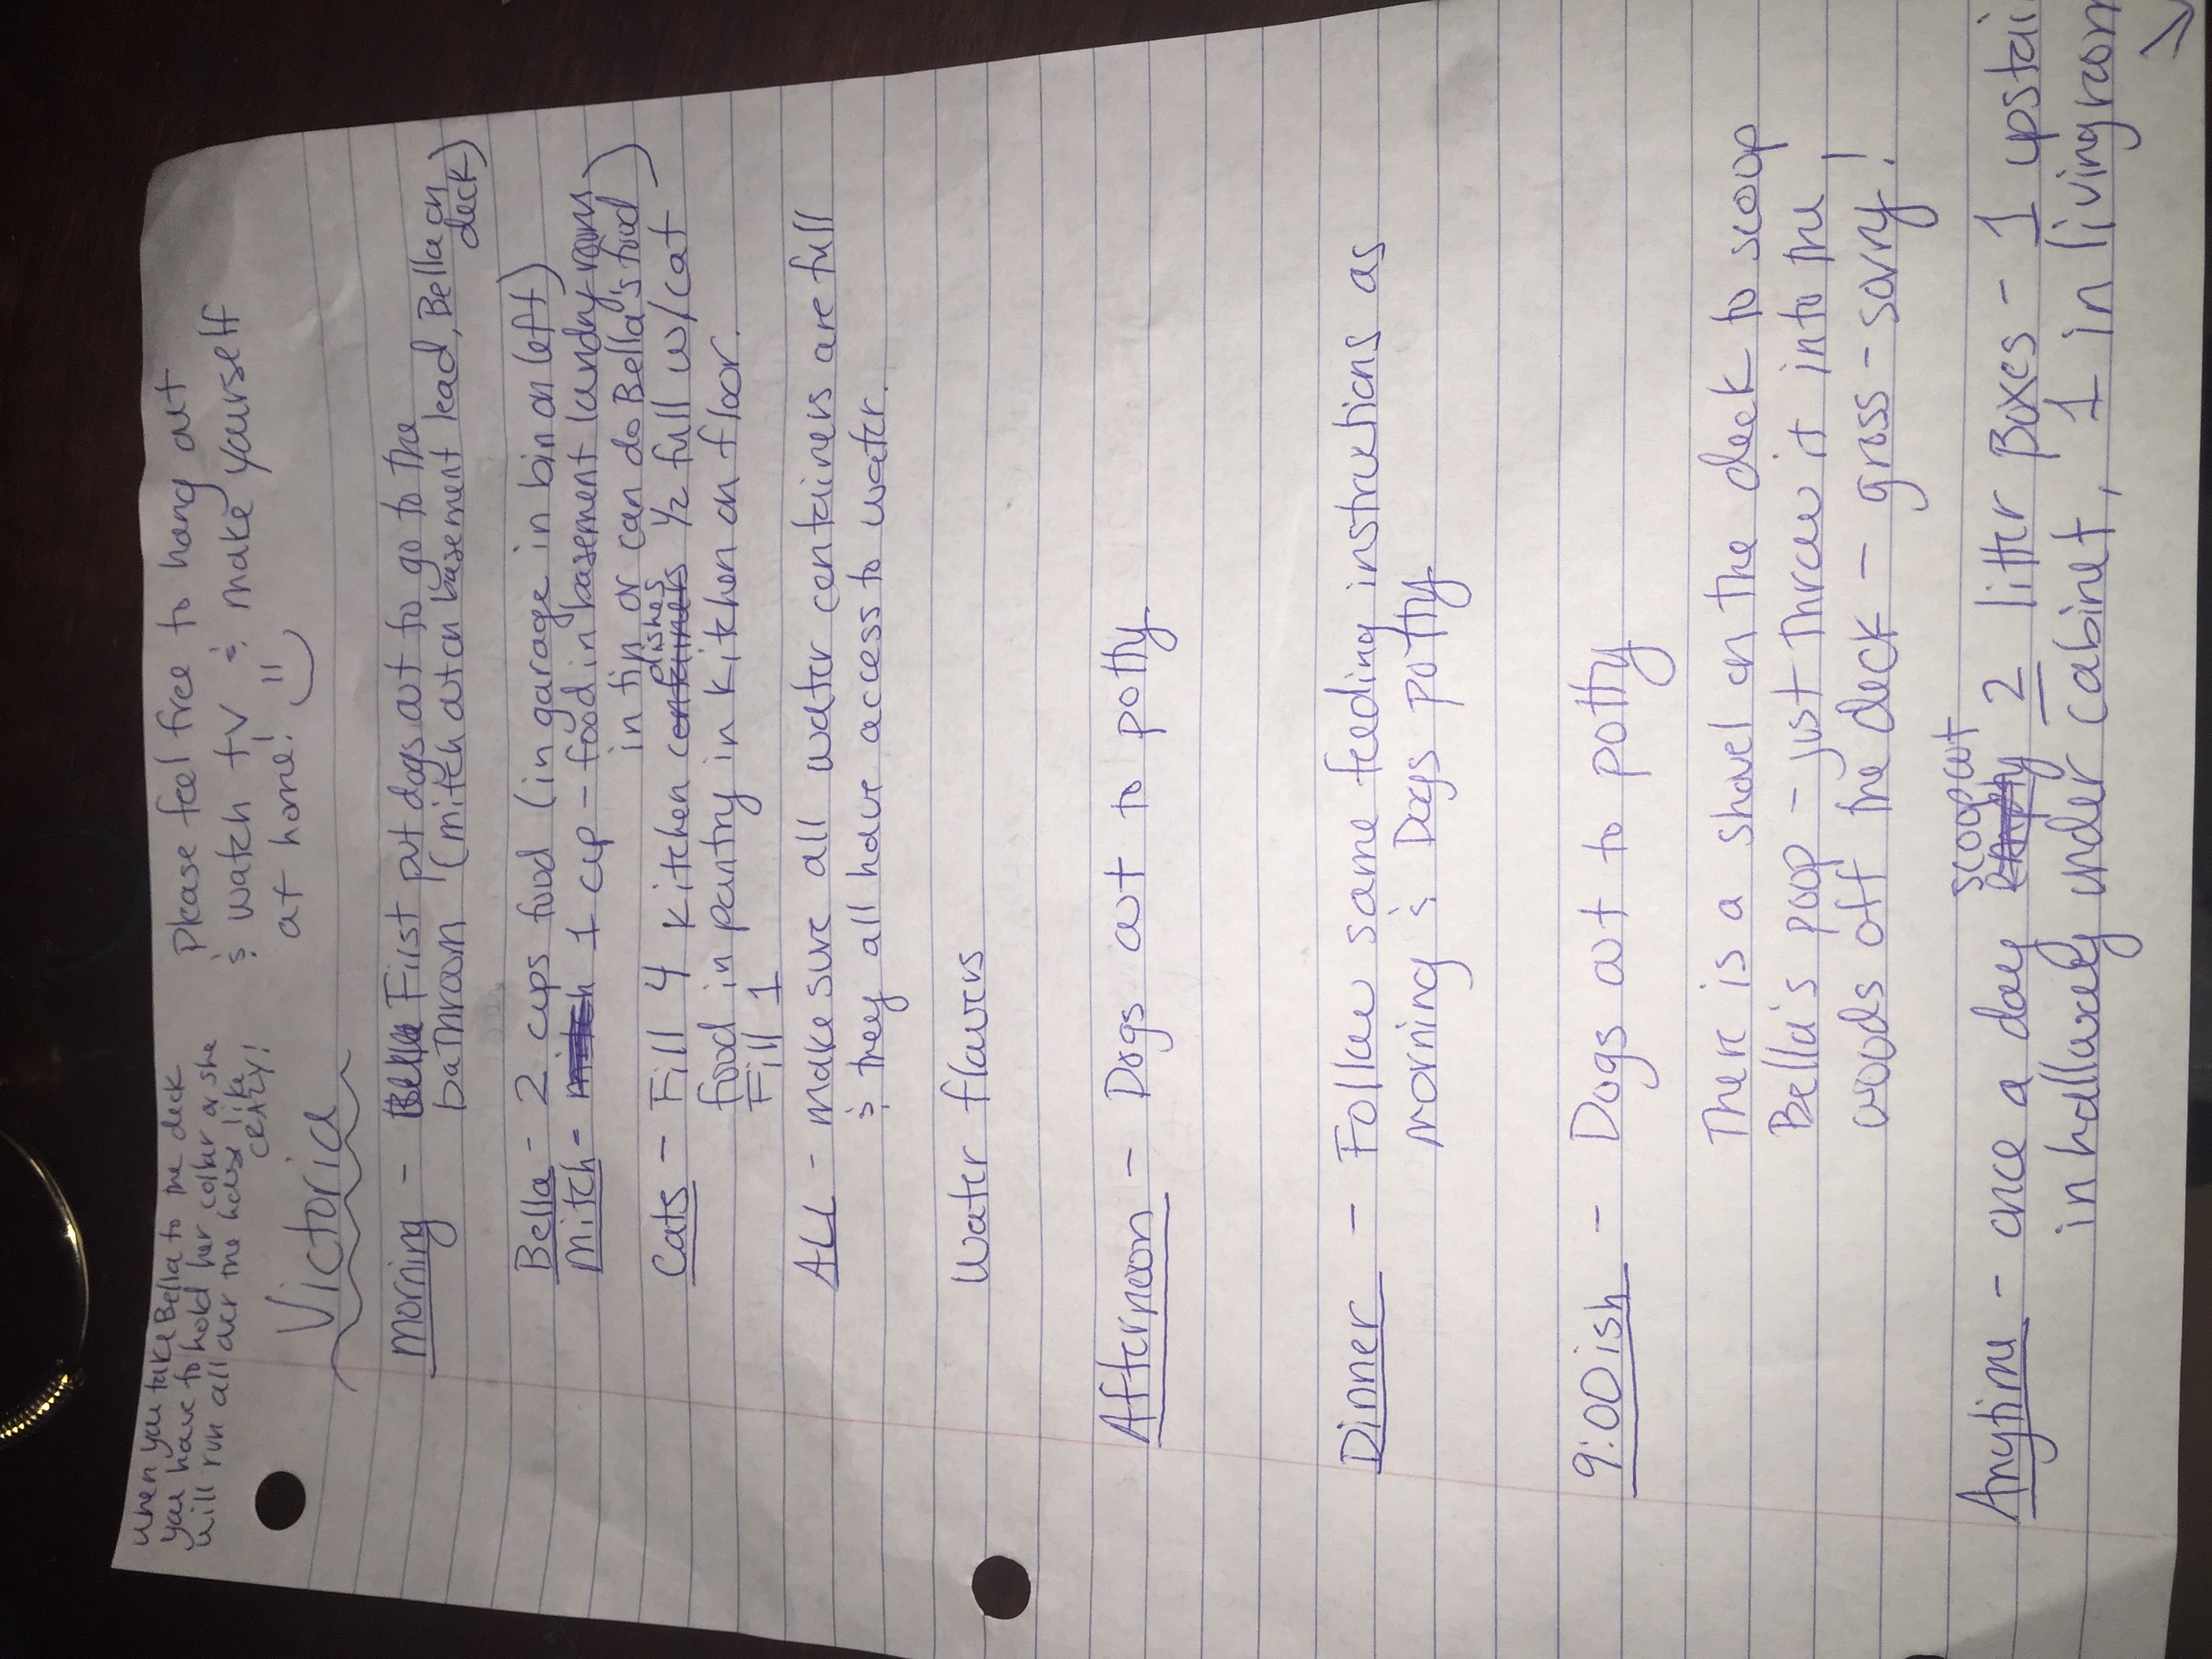 when you take Bella to the deck
you have to hold her collar or she
will run all over the house like
CRAZY!
Please feel free to hang out
& watch TV & make yourself
at home!
Victoria
Morning - First put dogs out to go to the
bathroom (Mitch out on basement lead, Bella on
deck)
Bella - 2 cups food (in garage in bin on left)
Mitch - 1 cup - food in basement laundry room
in tin or can do Bella's food)
Cats - Fill 4 kitchen dishes 1/2 full w/cat
food in pantry in kitchen on floor.
Fill 1
ALL - make sure all water containers are full
& they all have access to water.
Water flowers
Afternoon - Dogs out to potty
Dinner - Follow same feeding instructions as
morning & Dogs potty
9:00ish - Dogs out to potty
There is a shovel on the deck to scoop
Bella's poop - just throw it into the
woods off the deck - gross - sorry!
Anytime - once a day scoop out 2 litter boxes - 1 upstai
in hallway under cabinet, 1 in livingroom